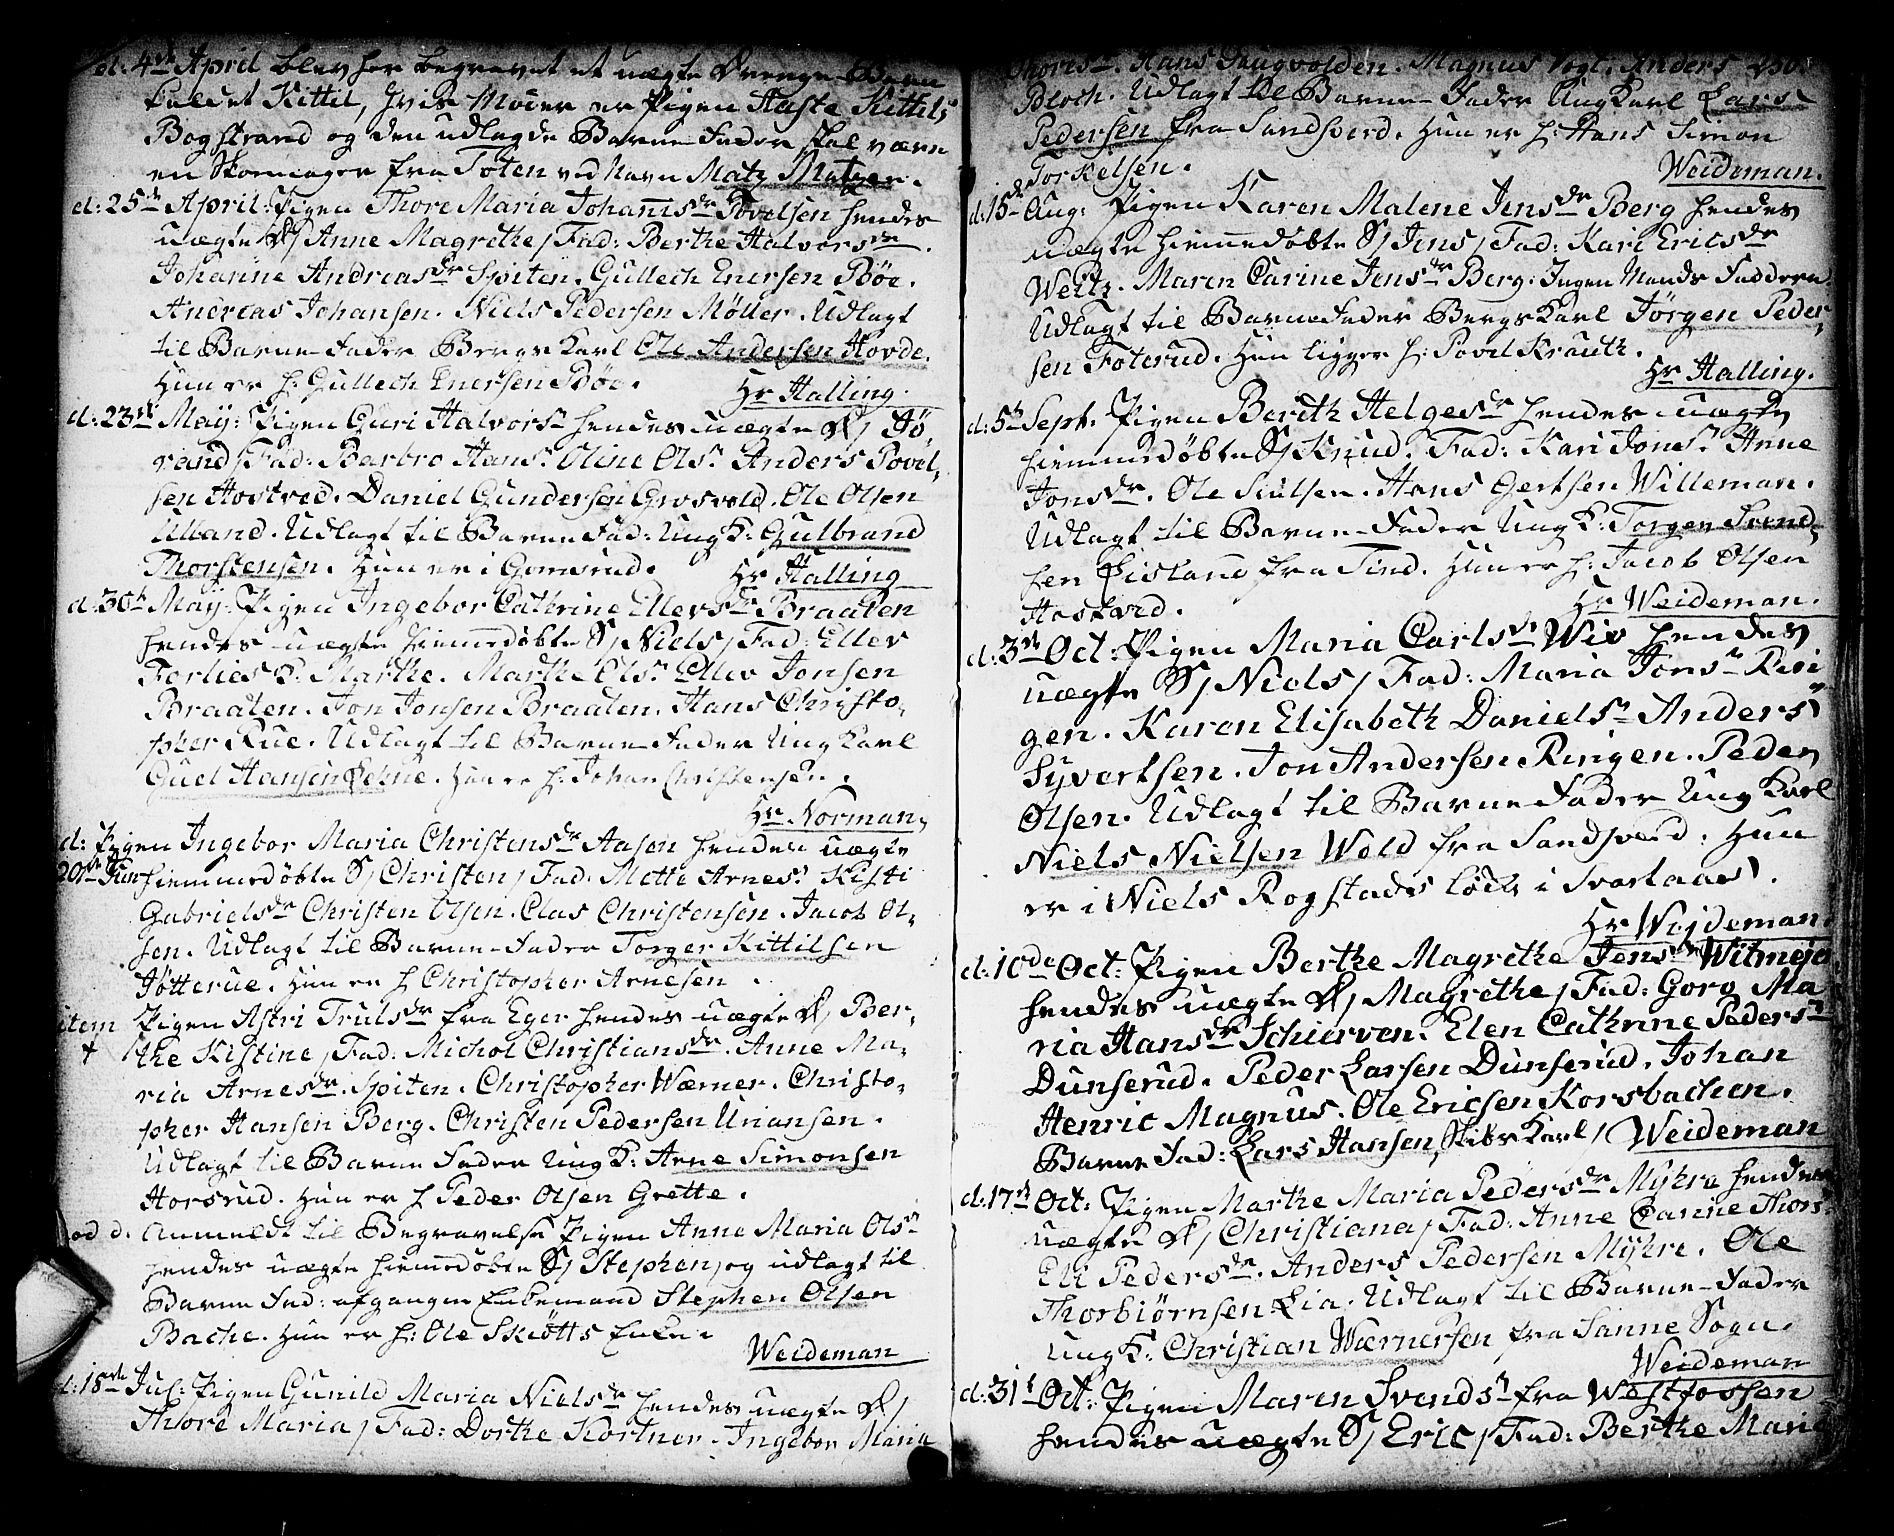 d: 4de April blev her begravet et uægte Drenge-Barn
kaldet Kittil, hvis Moder er Pigen Aaste Kittils
Bogstrand og den udlagde Barne-Fader skal være
en Skomager fra Toten ved Navn Matz Matzen.
d: 25de April: Pigen Thore Maria Johannsdr Povelsen hendes
uægte D/ Anne Magrethe/ Fad: Berthe Halvorsdr.
Johanne Andreasdr Spiten. Gullech Enersen Bøe.
Andreas Johansen. Niels Pedersen Møller. Udlagt
til Barne-Fader BergsKarl Ole Andersen Hovde.
Hun er h: Gullech Enersen Bøe.
Hr Halling.
d: 23de May: Pigen Guri Halvorsr hendes uægte D/ Jø,
rand/ Fad: Barbro Hansr Oline Olsr Anders Povel,
sen Hostved. Daniel Gundersen Grosvold. Ole Olsen
Ulland. Udlagt til Barne Fad: UngK: Gulbrand
Thorstensen. Hun er i Gomsrud.
Hr Halling
d: 30te May: Pigen Ingebor Cathrine Ellevsdr Braaten
hendes uægte hiemmedøbte S/ Niels/ Fad: Ellev
Forlies K: Marthe. Marthe Olsr Ellev Jonsen
Braaten. Jon Jonsen Braaten. Hans Christo,
pher Rue. Udlagt til Barne-Fader Ung Karl
Guel Hansen Lehne. Hun er h: Johan Christensen.
Hr Norman,
d: Pigen Ingebor Maria Christensdr Aasen hendes uægte
20de Jun hiemmedøbte S/ Christen/ Fad: Mette Arnesr Kisti
Gabrielsdr Christen Olsen. Clas Christensen. Jacob Ol,
sen. Udlagt til Barne-Fader Torger Kittilsen
Jøtterue. Hun er h Christopher Arnesen.
item Pigen Astri Trulsdr fra Eger hendes uægte D/ Ber,
+ the Kistine/ Fad: Michol Christiansdr. Anne Ma,
ria Arnesdr. Spiten. Christopher Wærner. Christo,
pher Hansen Berg. Christen Pedersen Uriansen.
Udlagt til Barne Fader Ung K: Arne Simonsen
Horsrud. Hun er h Peder Olsen Grette.
od d. Anmeldt til Begravelse Pigen Anne Maria Olsr
hendes uægte hiemmedøbte S/ Stephen, og udlagt til
Barne Fad: afgangen Enkemand Stephen Olsen
Bache. Hun er h: Ole Skiøtts Enke.
Weideman
d: 18de Jul: Pigen Gunild Maria Nielsdr hendes uægte D/
Thore Maria/ Fad: Dorthe Kortner. Ingebor Maria
Thorisdr. Hans Haugvolden. Magnus Vogt. Anders 250.
Bloch. Udlagt til Barne-Fader UngKarl Lars
Pedersen fra Sandsverd. Hun er h: Hans Simon
Torkelsen.
Weideman.
d: 15de Aug: Pigen Karen Malene Jensdr Berg hendes
uægte hiemmedøbte S/ Jens/ Fad: Kari Ericsdr
Weitz. Maren Carine Jensdr Berg. Ingen Mands Faddere.
Udlagt til BarneFader BergsKarl Jørgen Peder,
sen Foterud. Hun ligger h: Povel Krauth.
Hr Halling.
d: 5te Sept. Pigen Berith Helgesdr hendes uægte
hiemmedøbte S/ Knud. Fad: Kari Jonsr Anne
Jonsdr. Ole Siulsen. Hans Gertsen Willeman.
Udlagt til Barne-Fader UngK: Torgen Svend,
sen Øisland fra Tind. Hun er h: Jacob Olsen
Hostved.
Hr Weideman.
d: 3de Oct: Pigen Maria Carlsdr Wiv hendes
uægte S/ Niels/ Fad: Maria Jonsr Rin
gen. Karen Elisabeth Danielsr Anders
Syvertsen. Jon Andersen Ringen. Peder
Olsen. Udlagt til Barne Fader Ung Karl
Niels Nielsen Wold fra Sandsverd. Hun
er i Niels Rogstads Løck i Svartaas.
Hr Weideman.
d: 10de Oct: Pigen Berthe Magrethe Jensdr Witmeja
hendes uægte D/ Magrethe/ Fad: Goro Ma
ria Hansdr Schierven. Elen Cathrine Pedersr
Dunserud. Peder Larsen Dunserud. Johan
Henric Magnus. Ole Ericsen Korsbachen.
Barne Fad: Lars Hansen, Stitz Karl/ Weideman
d: 17de Oct: Pigen Marthe Maria Pedersdr Myhre hendes
uægte D/ Christiana/ Fad: Anne Carine Thorsr
Eli Pedersdr. Anders Pedersen Myhre. Ole
Thorbiørnsen Lia. Udlagt til Barne-Fader
UngK: Christian Wærnersen fra Sanne Sogn.
Weideman
d: 31te Oct: Pigen Maren Svendsr fra Westfossen
hendes uægte S/ Eric/ Fad: Berthe Maria